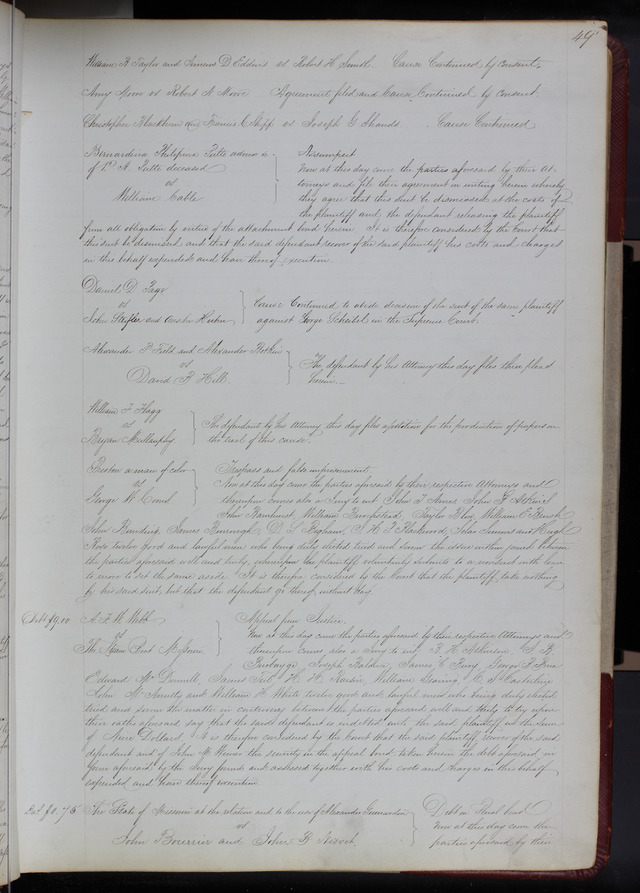 49
William R Taylor and Simeon D Eddins vs Robert H Smith. Cause Continued by consent.
Amy Moore vs Robert N Moore Agreement filed and Cause Continued by Consent.
Christopher Blackburn Francis C Shipp vs Joseph G Shands. Cause Continued
Bernardina Philipina Tutte admr
of A. Tutte deceased
vs
William Cable
Assumpsit
Now at this day came the parties aforesaid by their At-
torneys and file their agreement in writing herein whereby
they agree that this suit be dismissed at the costs of
the plaintiff and the defendant releasing the plaintiff
from all obligation by virtue of the attachment bond herein. It is therefore considered by the Court that
this suit be dismissed and that the said defendant recover of the said plaintiff his costs and charges
in this behalf expended and have thereof execution.
Daniel D. Page
vs
John Steffer and
Cause Continued to abide decision of the suit of the same plaintiff
against George in the Supreme Court.
Alexander P Field and Alexander
vs
David P Hill
The defendant by his Attorney this day files three pleas
herein.
William F Flagg
vs
Bryan Mullanphy
The defendant by his Attorney this day files a petition for the production of papers in
the of this cause.
Preston a man of color
vs
George W. Coons
Trespass and false imprisonment
Now at this day came the parties aforesaid by their respective Attorneys and
thereupon comes also a Jury to wit John T John G
John William Bumpstead, Taylor William E
John James D. S. T. Blackwood, Silas and Hugh
Rose twelve good and lawful men who being duly elected tried and sworn the issue within joined between
the parties aforesaid well and truly, whereupon the plaintiff voluntarily submits to a nonsuit with leave
to move to set the same aside. It is therefore considered by the Court that the plaintiff take nothing
by his said suit, but that the defendant go thereof without day.
Debt \$9,00
A. F. W. Webb
vs
The Steam Boat Missouri
Appeal from Justice.
Now at this day came the parties aforesaid by their respective Attorneys and
thereupon comes also a Jury to wit, R. H. Atkinson,
Joseph Baldwin, James C
Edward William
John M and William H. White twelve good and lawful men who being duly elected
tried and sworn the matter in controversy between the parties aforesaid well and truly to try upon
their oaths aforesaid say that the said defendant is indebted unto the said plaintiff in the sum
of Nine Dollars. It is therefore considered by the Court that the said plaintiff recover of the said
defendant and of John M the security in the appeal bond taken herein the debt aforesaid in
form aforesaid by the Jury found and assessed together with his costs and charges in this behalf
expended and have thereof execution
The State of Missouri at the relation and to the use of Alexander
vs
John Bourrier and John B
Debt on Penal bond
Now at this day come the
parties aforesaid by their